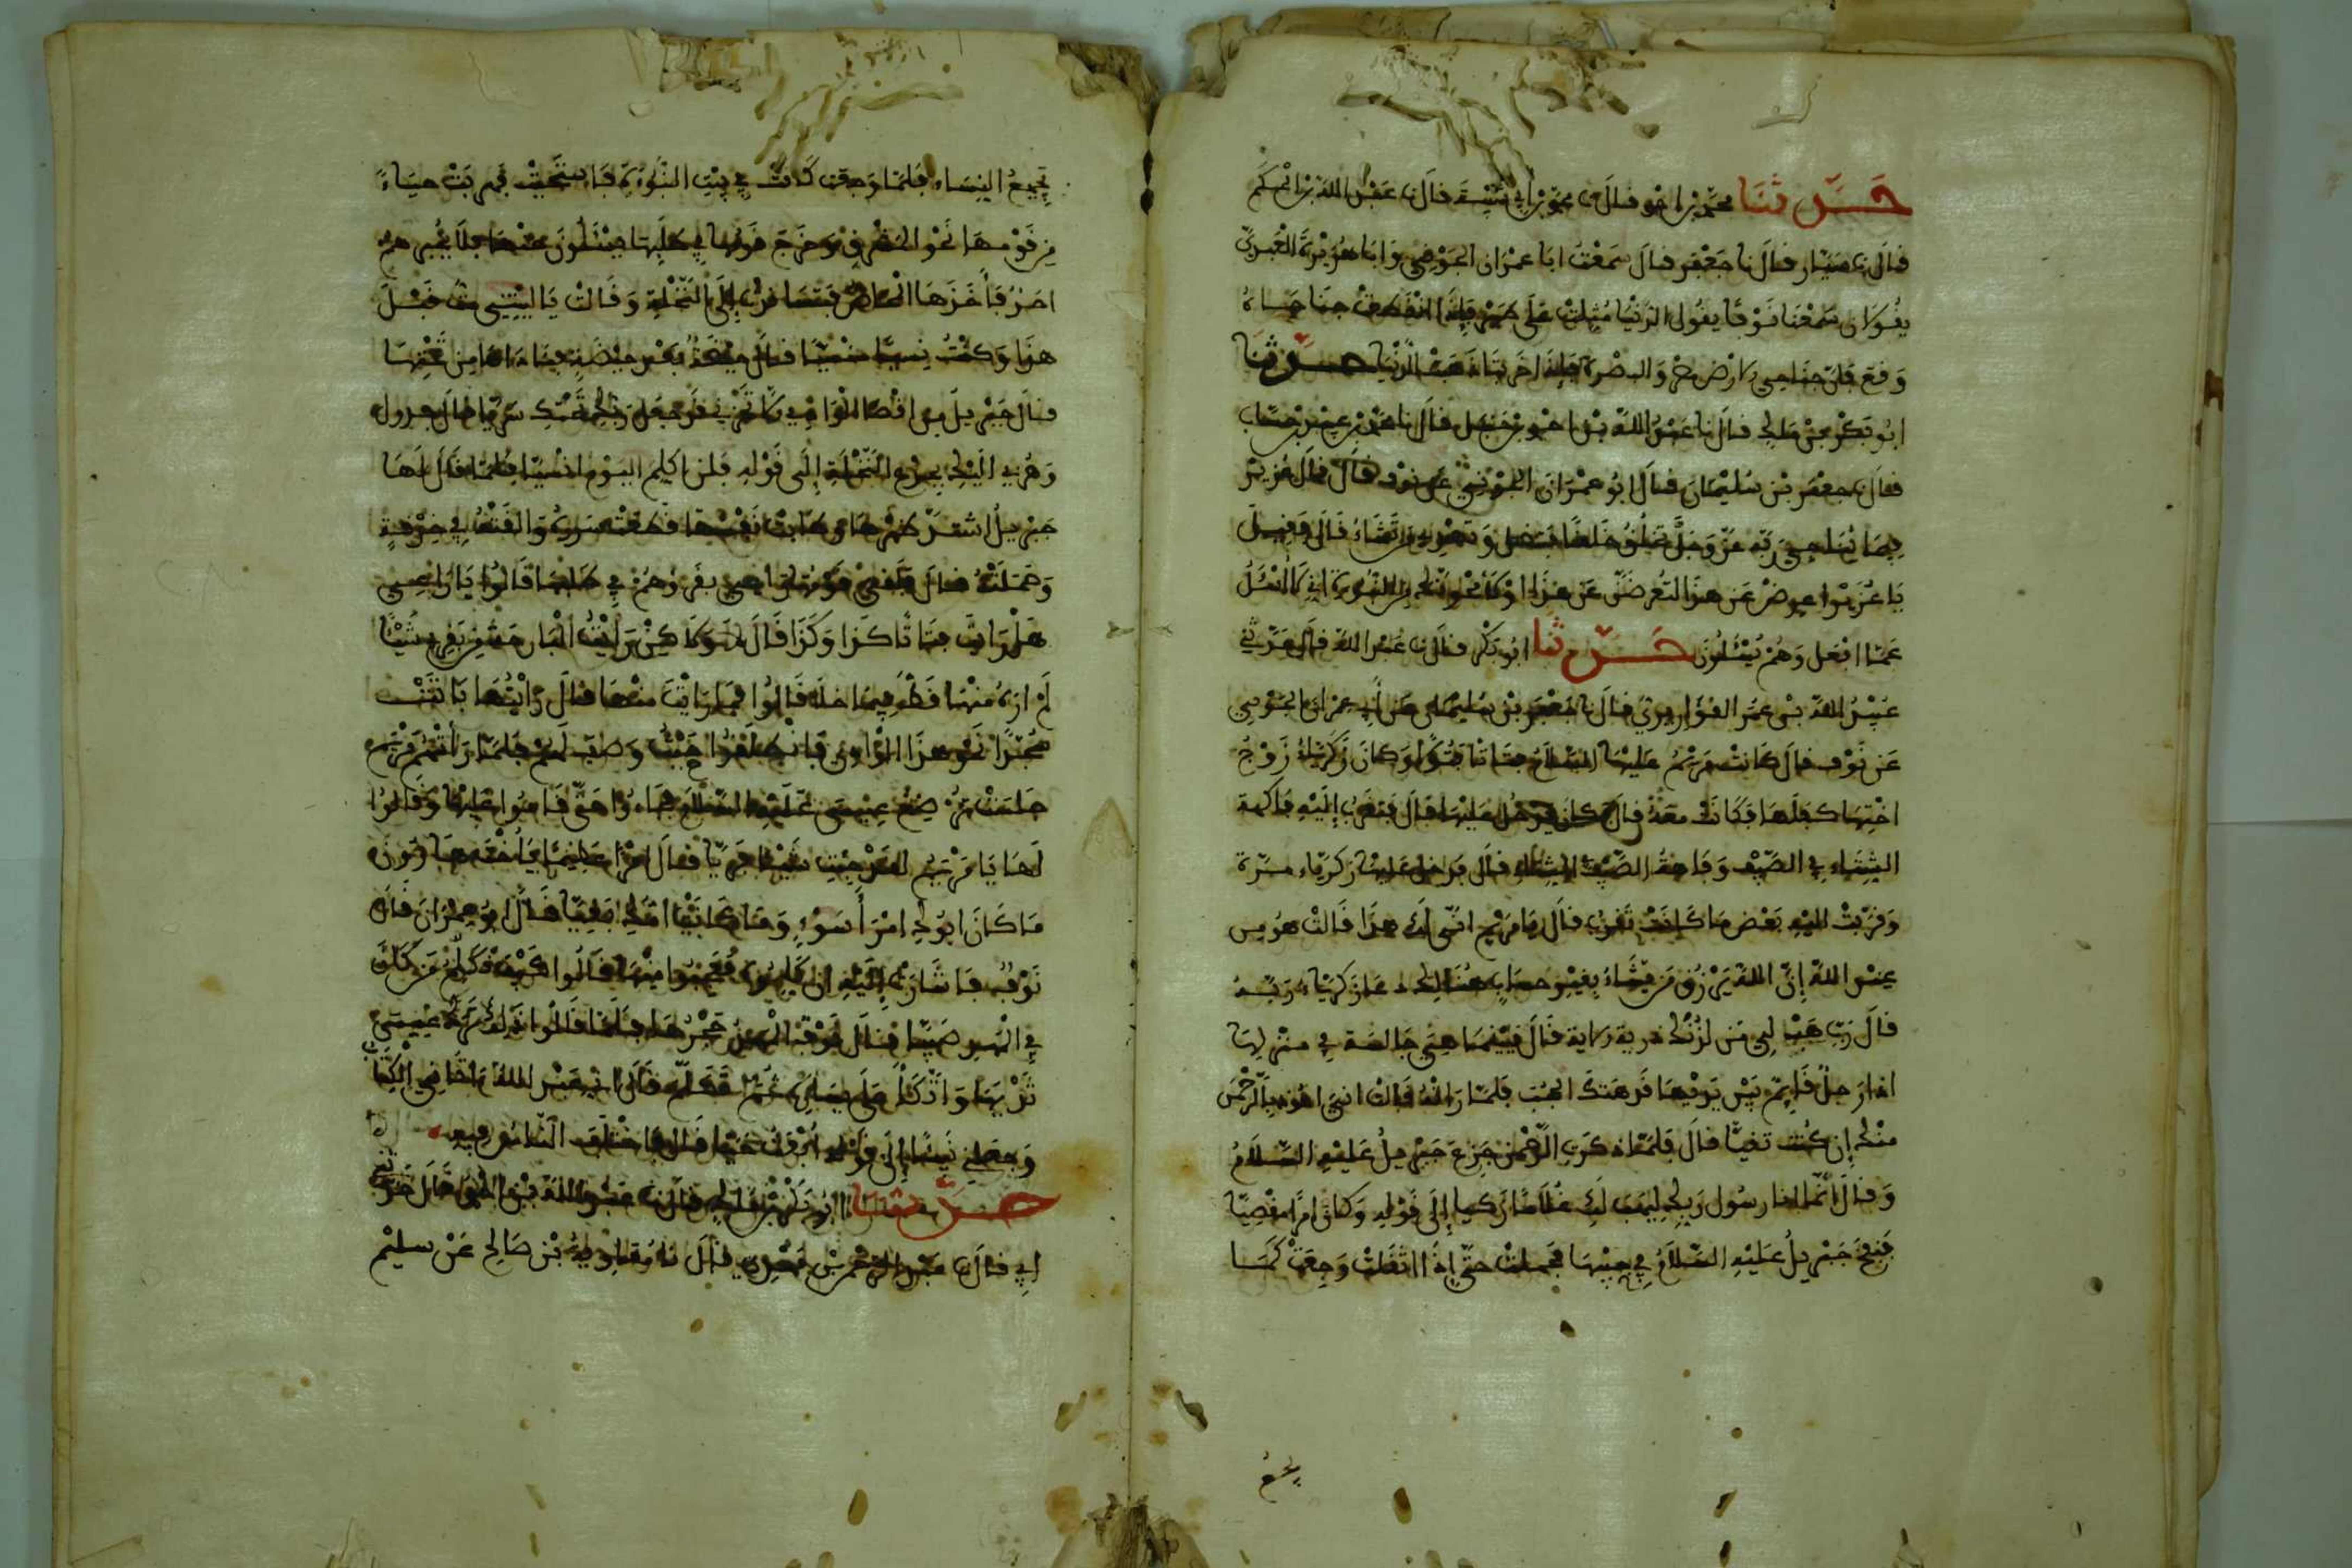 حدثنا محمد بن احمد قال نا محمد بن ابي شيبة قال نا عبد الله بن الحكم
قال نا سيار قال نا جعفر قال سمعت ابا عمران الجوني وابا هرون العبدي
يقولان سمعنا نوفا يقول الدنيا مثلت على طير فاذا انقطع جناحاه
وقع وان جناحي الارض مصر والبصرة فاذا خربتا ذهبت الدنيا حدثنا
ابو بكر بن مالك قال نا عبد الله بن احمد بن حنبل قال نا محمد بن عبيد بن حساب
قال نا جعفر بن سليمان قال ابو عمران الجوني عن نوف قال قال عزير
فيما يناجي ربه عز وجل تخلق خلقا فتضل وتهدي من تشاء قال فقيل
يا عزير اعرض عن هذا لتعرضن عن هذا او لامحونك من النبوءة اني لا اسئل
عما افعل وهم يسئلون حدثنا ابو بكر قال نا عبد الله قال حدثني
عبيد الله بن عمر القواريري قال نا جعفر بن سليمان عن ابي عمران الجوني
عن نوف قال كانت مريم عليها السلام فتاة بتولا وكان زكرياء زوج
اختها كفلها فكانت معه قال فكان يدخل عليها قال فتقرب اليه فاكهة
الشتاء في الصيف وفاكهة الصيف في الشتاء قال فدخل عليها زكرياء مرة
وقربت اليه بعض ما كانت تقرب قال يا مريم انى لك هذا قالت هو من
عند الله إن الله يرزق من يشاء بغير حساب هنالك دعا زكرياء ربه
قال رب هب لي من لدنك ذرية الاية قال فبينما هي جالسة في منزلها
اذا رجل قائم بين يديها قد هتك الحجب فلما راته قالت اني اعوذ بالرحمن
منك إن كنت تقيا قال فلما ذكرت الرحمن جزع جبريل عليه السلام
وقال انما انا رسول ربك ليهب لك غلاما زكيا إلى قوله وكان امرا مقضيا
فنفخ جبريل عليه السلام في جيبها فحملت حتى إذا اثقلت وجعت كما
يجع
يجمع النساء فلما وجعت كانت في بيت النبوءة فاستحيت فهربت حياء
من قومها نحو المشرق وخرج قومها في طلبها يسئلون عنها فلا يخبرهم
احد فاخذها المخاض فتساندت إلى النخلة وقالت يا ليتني مت قبل
هذا وكنت نسيا منسيا قال حيضة بعد حيضة فناداها من تحتها
قال جبريل من اقصا الوادي الا تحزني قد جعل ربك تحتك سريا قال جدول
وهزي اليك بجذع النخلة إلى قوله فلن اكلم اليوم انسيا فلما قال لها
جبريل اشتد ظهرها وطابت نفسها فقطعت سرره ولفته في خرقة
وحملته قال فلقي قومها راعي بقر وهم في طلبها قالوا يا راعي
هل رايت فتاة كذا وكذا قال لا ولاكن رايت البارحة من بقري شيئا
لم اره منها قط فيما خلا قالوا فما رايت منها قال رايتها باتت
سجدا نحو هذا الوادي فانطلقوا حيث وصف لهم فلما راتهم مريم
جلست ترضع عيسى عليه السلام فجاءوا حتى قاموا عليها وقالوا
لها يا مريم لقد جئت شيئا فريا قال امرا عظيما يا اخت هارون
ما كان ابوك امرأ سوء وما كانت امك بغيا قال ابو عمران قال
نوف فاشارت إليه ان كلموه فعجبوا منها قالوا كيف نكلم من كان
في المهد صبيا قال نوف المهد حجرها فلما قالوا ذلك ترك عيسى
ثديها واتكأ على يساره ثم تكلم قال اني عبد الله اتاني الكتاب
وجعلني نبيا إلى قوله ابعث حيا قال فاختلف الناس فيه
حدثنا ابو بكر بن مالك قال نا عبد الله بن احمد قال حدثني
ابي قال نا عبد الرحمن بن مهدي قال نا معاوية بن صالح عن سليم